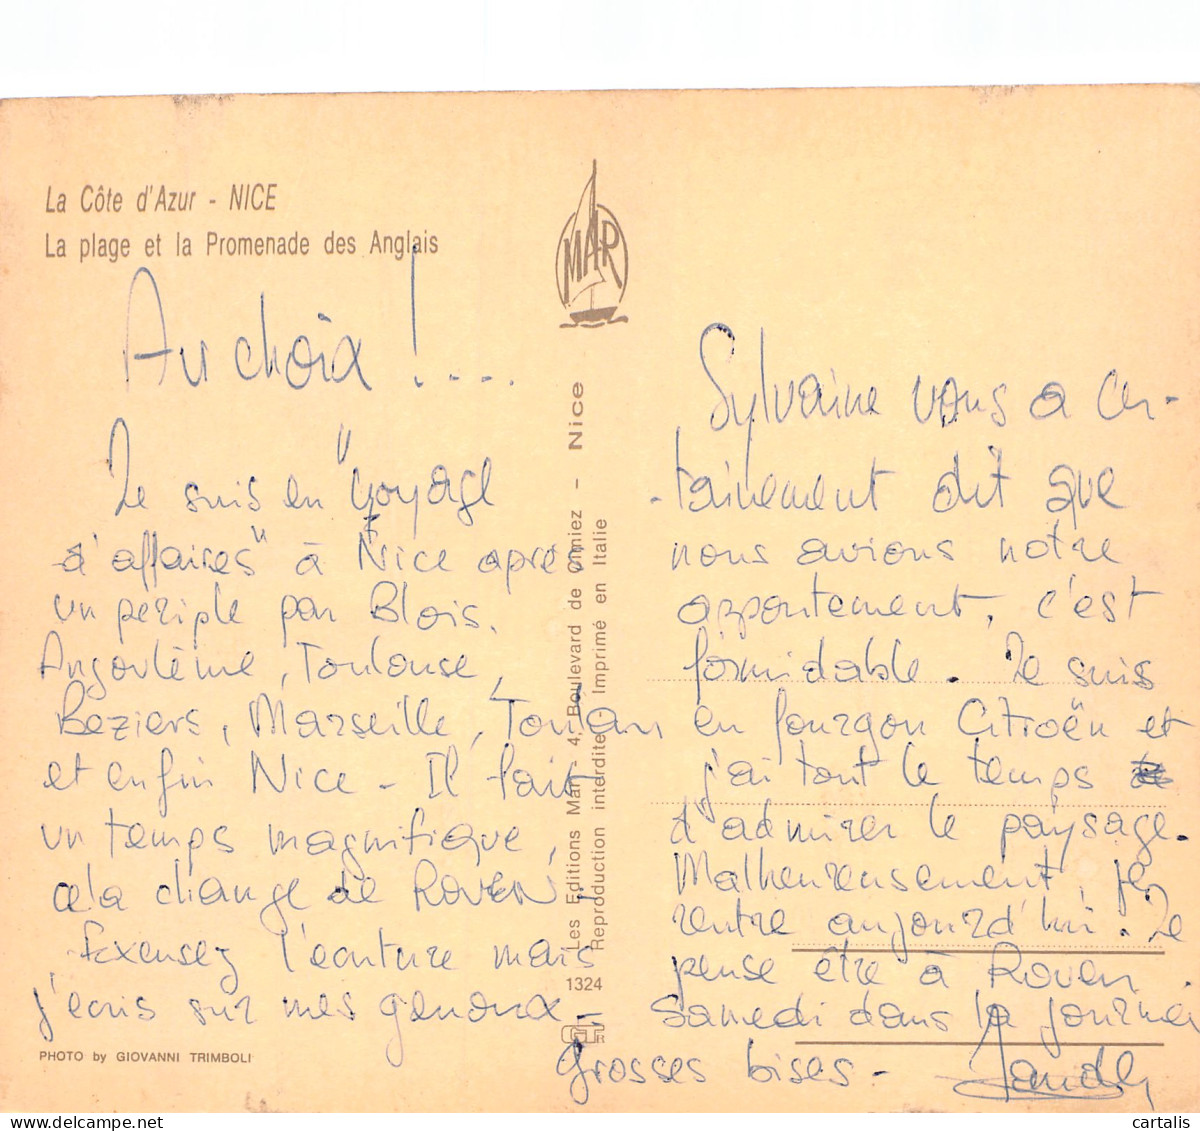 La Côte d'Azur - NICE
La plage et la Promenade des Anglais
MAR
Au choix !....
Je suis en "voyage
d'affaires" à Nice après
un périple par Blois,
Angoulème, Toulouse,
Béziers, Marseille, Toulon
et enfin Nice - Il fait
un temps magnifique,
cela change de ROUEN -
Excusez l'écriture mais
j'écris sur mes genoux -
PHOTO by GIOVANNI TRIMBOLI
Les Editions Mar - 4, Boulevard de Cimiez - Nice
Reproduction interdite Imprimé en Italie
1324
Sylvaine vous a cer-
-tainement dit que
nous avions notre
appontement, c'est
formidable. Je suis
en fourgon Citroën et
j'ai tout le temps
d'admirer le paysage.
Malheureusement, je
rentre aujourd'hui. Je
pense être à Rouen
Samedi dans la journée
Grosses bises -
cartalis